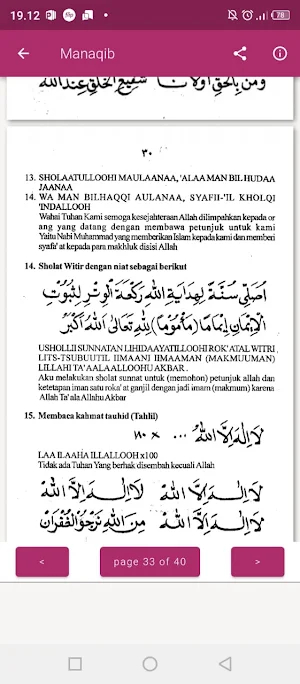 19.12
78
Manaqib
ومن بالحق اولانا شفيع الخلق عند الله
٣٠
13. SHOLAATULLOOHI MAULAANAA, 'ALAA MAN BIL HUDAA
JAANAA
14. WA MAN BILHAQQI AULANAA, SYAFII-'IL KHOLQI
'INDALLOOH
Wahai Tuhan Kami semoga kesejahteraan Allah dilimpahkan kepada or
ang yang datang dengan membawa petunjuk untuk kami
Yaitu Nabi Muhammad yang memberikan Islam kepada kami dan memberi
syafa' at kepada para makhluk disisi Allah
14. Sholat Witir dengan niat sebagai berikut
اصلى سنة لهداية الله ركعة الوتر لثبوت
الإيمان إماما (مأموما) لله تعالى الله أكبر
USHOLLII SUNNATAN LIHIDAAYATILLOOHI ROK' ATAL WITRI
LITS-TSUBUUTIL IIMAANI IIMAAMAN (MAKMUUMAN)
LILLAHI TA'AALAALLOOHU AKBAR .
Aku melakukan sholat sunnat untuk (memohon) petunjuk allah dan
ketetapan iman satu roka' at ganjil dengan jadi imam (makmum) karena
Allah Ta' ala Allahu Akbar
15. Membaca kahmat tauhid (Tahlil)
لا إله إلا الله ... × ١٨٠
LAA ILAAHA ILLALLOOH x100
Tidak ada Tuhan Yang berhak disembah kecuali Allah
لا إله إلا الله لا إله إلا الله
لا إله إلا الله من الله نرجو الغفران
<
page 33 of 40
>